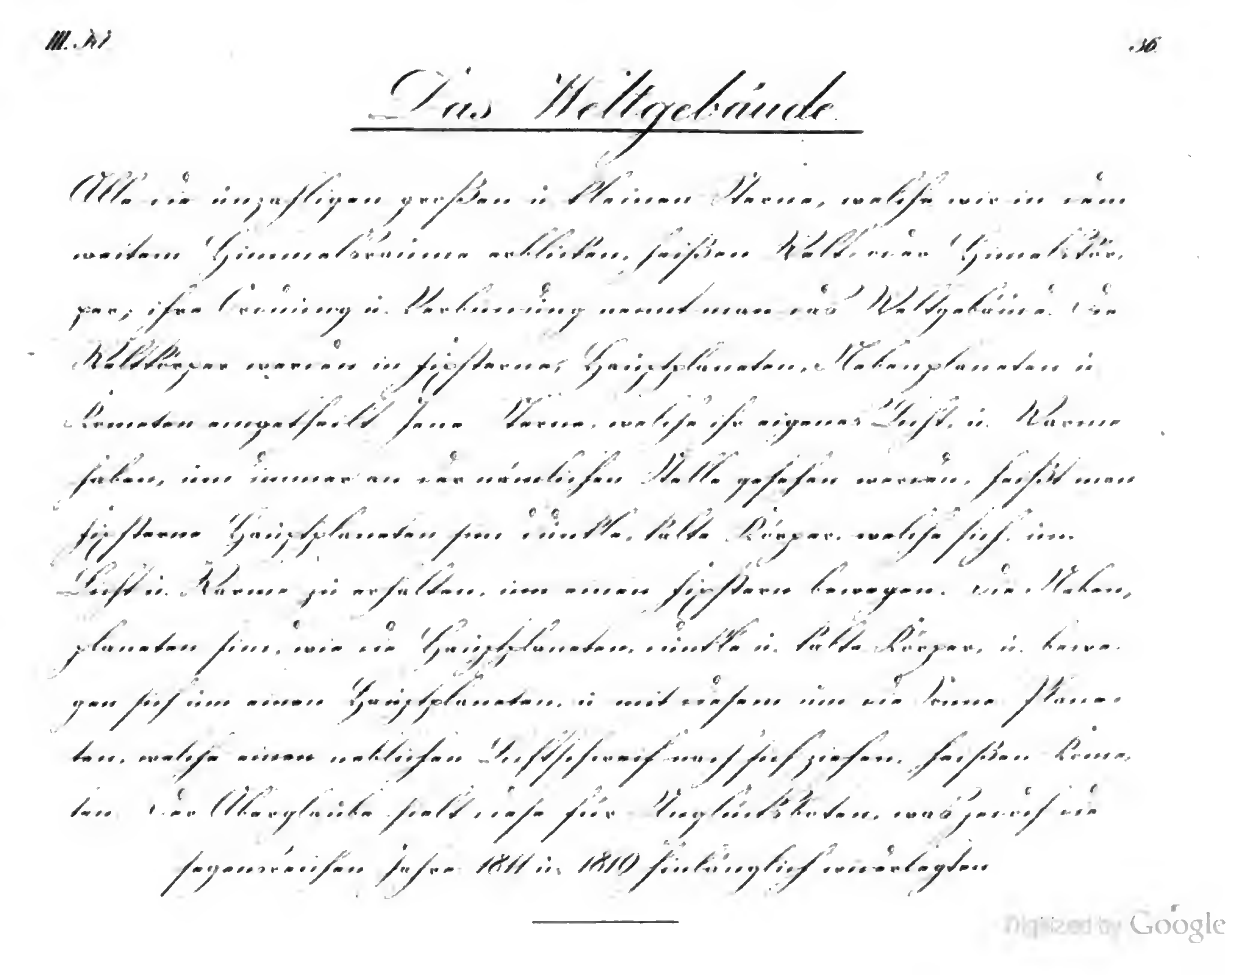 III. 36.
Das Weltgebäude.
Alle die unzahligen großen u. kleinen Sterne, welche wir in dem
weitem Himmelsraume erblicken, heißen Welt- oder Himelskör-
per; ihre Ordnung u. Verbindung nennt man das Weltgebäude. Die
Weltkörper werden in Fixsterne, Hauptplaneten, Nebenplaneten u.
Kometen eingetheilt. Jene Sterne, welche ihr eigenes Licht, u. Wärme
haben, und immer an der nämlichen Stelle gesehen werden, heißt man
Fixsterne. Hauptplaneten sind dunkle, kalte Körper, welche sich, um
Licht u. Wärme zu erhalten, um einen Fixstern bewegen. Die Neben-
planeten sind, wie die Hauptplaneten, dunkle u. kalte Körper, u. bewe-
gen sich um einen Hauptplaneten, u. mit diesem um die Sonne. Plane-
ten, welche einen neblichen Lichtschweif nach sich ziehen, heißen Kome-
ten. Der Aberglaube hielt diese für Unglücksboten, was jedoch die
segensreichen Jahre 1811 u. 1819 hinlänglich widerlegten.
Digitized by Google